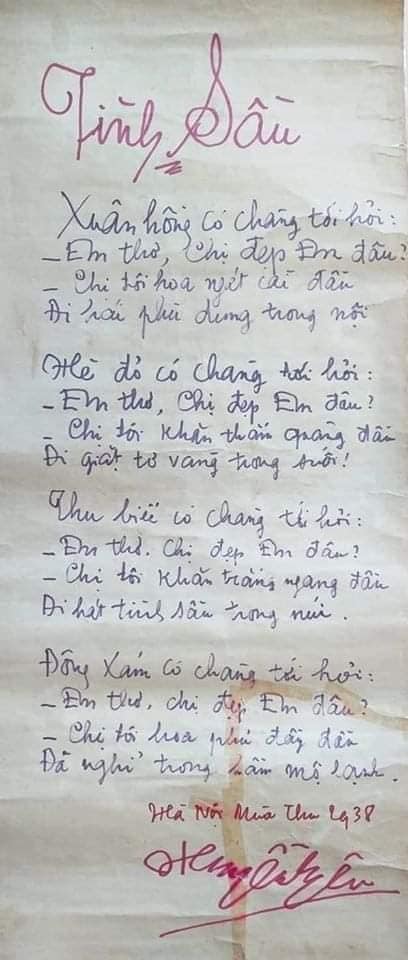 Tình Sầu
Xuân hồng có chàng tới hỏi:
– Em thơ, Chị đẹp Em đâu?
– Chị tôi hoa ngát cài đầu
Đi hái phù dung trong nội
Hè đỏ có chàng tới hỏi:
– Em thơ, Chị đẹp Em đâu?
– Chị tôi khăn thắm quàng đầu
Đi giặt tơ vàng trong suối!
Thu biếc có chàng tới hỏi:
– Em thơ. Chị đẹp Em đâu?
– Chị tôi khăn trắng ngang đầu
Đi hát tình sầu trong núi.
Đông xám có chàng tới hỏi:
– Em thơ. chị đẹp Em đâu?
– Chị tôi hoa phủ đầy đầu
Đã nghỉ trong hầm mộ lạnh.
Hà Nội Mùa Thu 1938